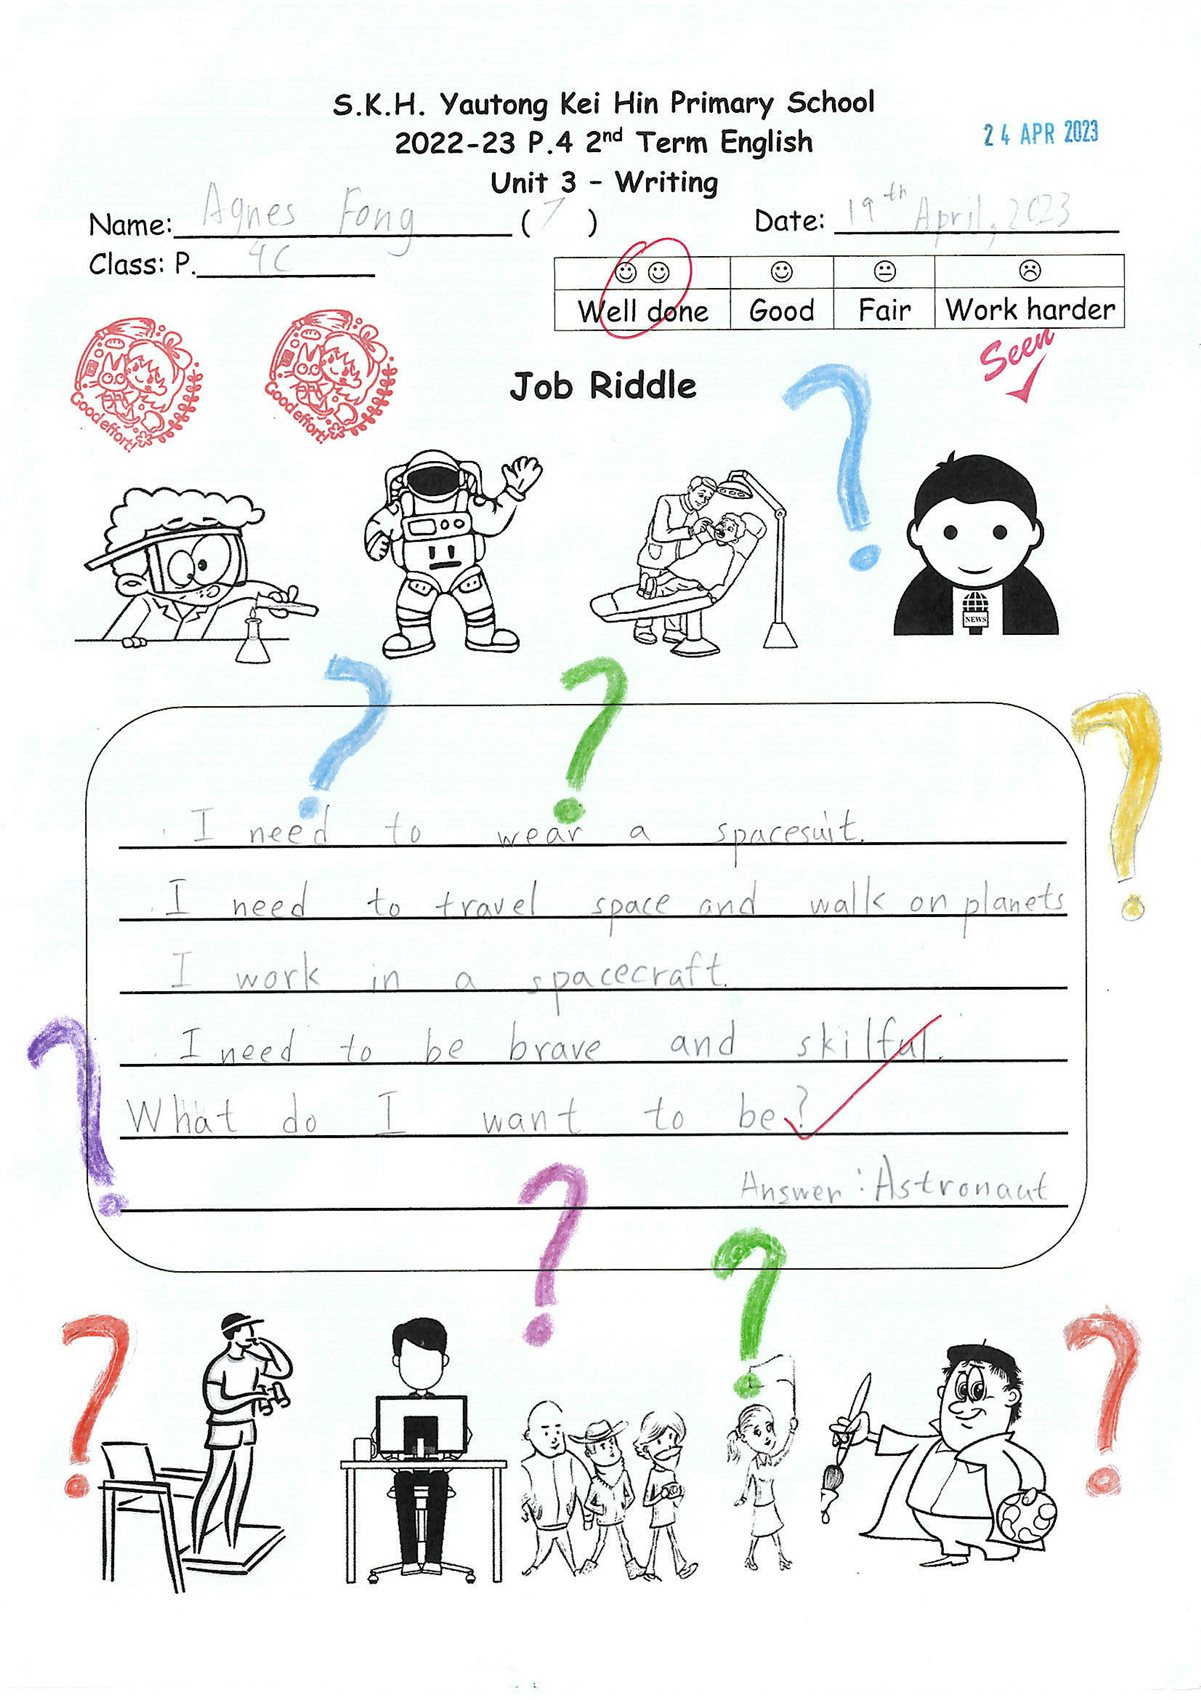 S.K.H. Yautong Kei Hin Primary School
2022-23 P.4 2nd Term English
24 APR 2023
Unit 3 - Writing
Name: Agnes Fong (7) Date: 19th April, 2023
Class: P. 4C
Well done Good Fair Work harder
Seen
Good effort! Good effort!
Job Riddle
NEWS
I need to wear a spacesuit.
I need to travel space and walk on planets
I work in a spacecraft.
I need to be brave and skilful.
What do I want to be?
Answer: Astronaut